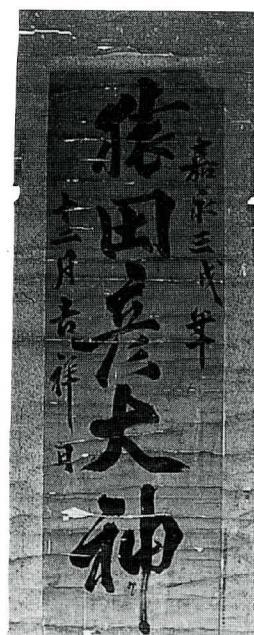 嘉永三戌年
猿田彦大神
十二月吉祥日